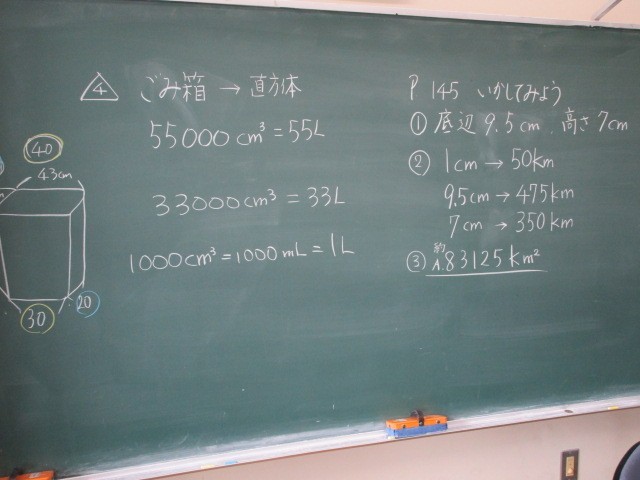 4 ごみ箱 → 直方体
55000cm³ = 55L
40
43cm
33000cm³ = 33L
1000cm³ = 1000mL = 1L
30
20
P 145 いかしてみよう
① 底辺 9.5cm 高さ 7cm
② 1cm → 50km
9.5cm → 475km
7cm → 350km
③ A. 約83125km²